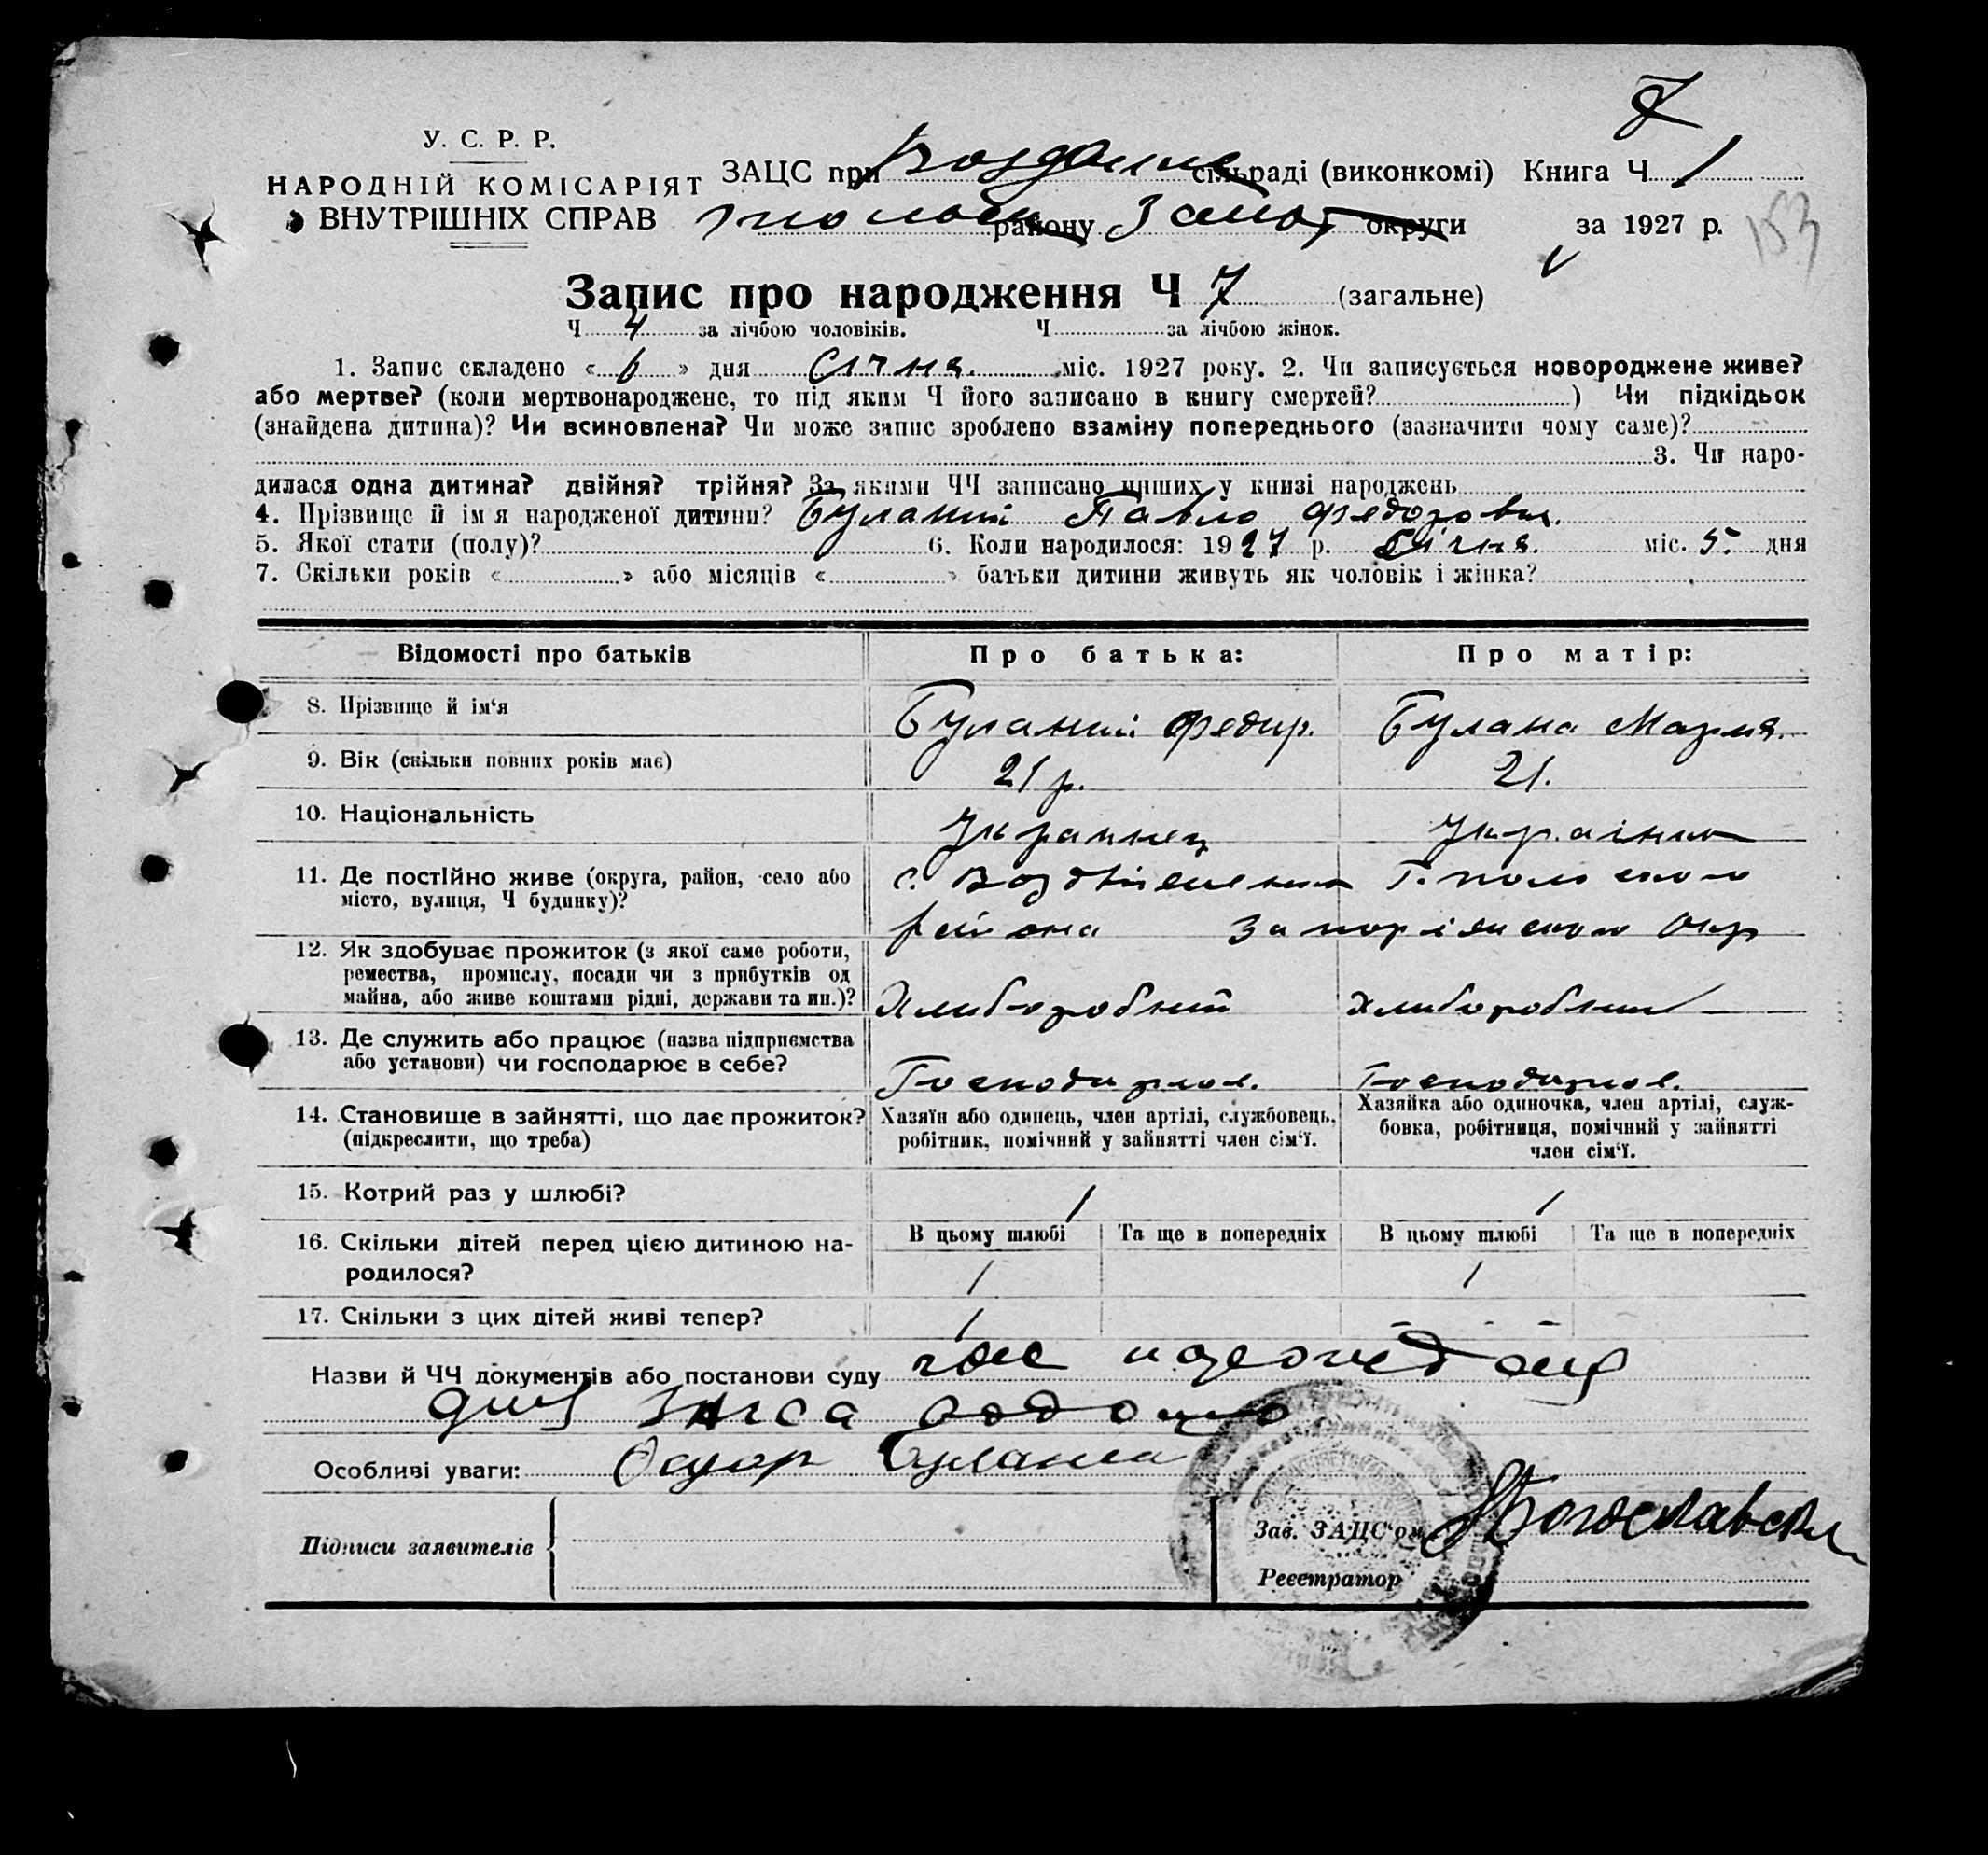 У. С. Р. Р.
НАРОДНІЙ КОМІСАРІЯТ
ВНУТРІШНІХ СПРАВ
7
ЗАЦС при сільраді (виконкомі) Книга Ч 1
району Запор округи за 1927 р.
153
Запис про народження Ч 7 (загальне)
Ч 4 за лічбою чоловіків. Ч за лічбою жінок.
1. Запис складено « 6 » дня Січня. міс. 1927 року. 2. Чи записується новороджене живе?
або мертве? (коли мертвонароджене, то під яким Ч його записано в книгу смертей? ) Чи підкідьок
(знайдена дитина)? Чи всиновлена? Чи може запис зроблено взаміну попереднього (зазначити чому саме)?
3. Чи наро-
дилася одна дитина? двійня? трійня? За якими ЧЧ записано инших у книзі народжень
4. Прізвище й імя народженої дитини? Буланий Павло Федорович.
5. Якої стати (полу)? 6. Коли народилося: 1927 р. Січня. міс. 5. дня
7. Скільки років « » або місяців « » батьки дитини живуть як чоловік і жінка?
Відомості про батьків Про батька: Про матір:
8. Прізвище й ім‘я Буланий Федир. Булана Мария.
9. Вік (скільки повних років має) 21 р. 21.
10. Національність Украинец Україн
11. Де постійно живе (округа, район, село або
місто, вулиця, Ч будинку)?
с. Воздвіженка
района Запоріжского Окр
12. Як здобуває прожиток (з якої саме роботи,
ремества, промислу, посади чи з прибутків од
майна, або живе коштами рідні, держави та ин.)?
Хлиборобний Хлиборобний
13. Де служить або працює (назва підприємства
або установи) чи господарює в себе?
14. Становище в зайнятті, що дає прожиток?
(підкреслити, що треба)
Хазяїн або одинець, член артілі, службовець,
робітник, помічний у зайнятті член сім‘ї.
Хазяйка або одиночка, член артілі, служ-
бовка, робітниця, помічний у зайнятті
член сім‘ї.
15. Котрий раз у шлюбі? 1 1
16. Скільки дітей перед цією дитиною на-
родилося?
В цьому шлюбі Та ще в попередніх В цьому шлюбі Та ще в попередніх
1 1
17. Скільки з цих дітей живі тепер? 1 - - -
Назви й ЧЧ документів або постанови суду
Особливі уваги:
Підписи заявителів
Зав. ЗАЦС‘ом
Реєстратор